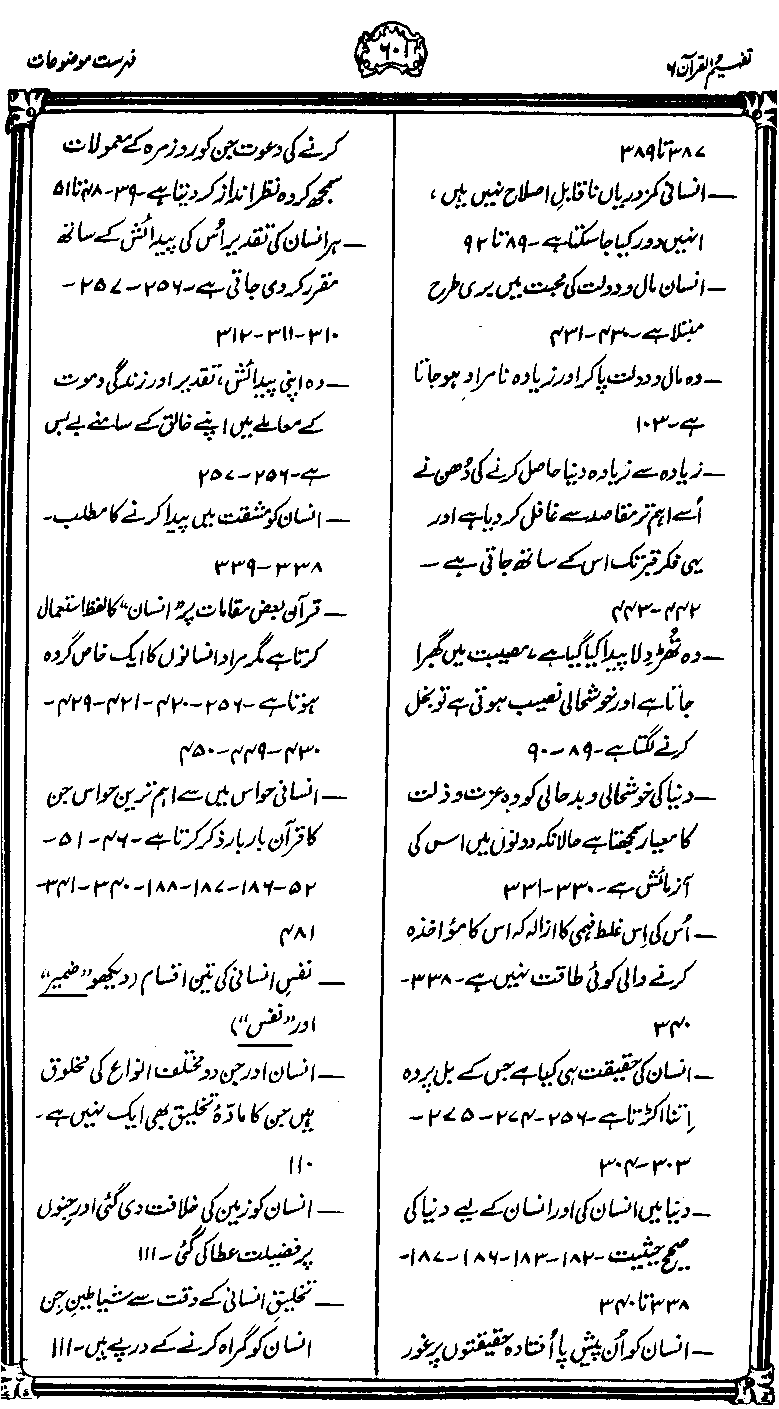 تفہیم القرآن ۶
۶۰۱
فہرست موضوعات
۳۸۷ تا ۳۸۹
— انسانی کمزوریاں ناقابلِ اصلاح نہیں ہیں،
انہیں دور کیا جا سکتا ہے - ۸۹ تا ۹۲
— انسان مال و دولت کی محبت میں بری طرح
مبتلا ہے - ۴۳۰ - ۴۳۱
— وہ مال و دولت پا کر اور زیادہ نامراد ہو جاتا
ہے - ۱۰۳
— زیادہ سے زیادہ دنیا حاصل کرنے کی دُھن نے
اُسے اہم تر مقاصد سے غافل کر دیا ہے اور
یہی فکر قبر تک اس کے ساتھ جاتی ہے —
۴۴۲ - ۴۴۳
— وہ تُھڑدِلا پیدا کیا گیا ہے، مصیبت میں گھبرا
جاتا ہے اور خوشحالی نصیب ہوتی ہے تو بخل
کرنے لگتا ہے - ۸۹ - ۹۰
— دنیا کی خوشحالی و بدحالی کو وہ عزت و ذلت
کا معیار سمجھتا ہے حالانکہ دونوں میں اس کی
آزمائش ہے - ۳۳۰ - ۳۳۱
— اُس کی اِس غلط فہمی کا ازالہ کہ اس کا مؤاخذہ
کرنے والی کوئی طاقت نہیں ہے - ۳۳۸ -
۳۴۰
— انسان کی حقیقت ہی کیا ہے جس کے بل پر وہ
اِتنا اکڑتا ہے - ۲۵۶ - ۲۷۴ - ۲۷۵ -
۳۰۳ - ۳۰۴
— دنیا میں انسان کی اور انسان کے لیے دنیا کی
صحیح حیثیت - ۱۸۲ - ۱۸۳ - ۱۸۶ - ۱۸۷ -
۳۳۸ تا ۳۴۰
— انسان کو اُن پیش پا اُفتادہ حقیقتوں پر غور
کرنے کی دعوت جن کو روز مرہ کے معمولات
سمجھ کر وہ نظر انداز کر دیتا ہے - ۳۹ - ۴۸ تا ۵۱
— ہر انسان کی تقدیر اُس کی پیدائش کے ساتھ
مقرر کر دی جاتی ہے - ۲۵۶ - ۲۵۷ -
۳۱۰ - ۳۱۱ - ۳۱۲
— وہ اپنی پیدائش، تقدیر اور زندگی و موت
کے معاملے میں اپنے خالق کے سامنے بے بس
ہے - ۲۵۶ - ۲۵۷
— انسان کو مشقت میں پیدا کرنے کا مطلب -
۳۳۸ - ۳۳۹
— قرآن بعض مقامات پر "انسان" کا لفظ استعمال
کرتا ہے مگر مراد انسانوں کا ایک خاص گروہ
ہوتا ہے - ۲۵۶ - ۴۲۰ - ۴۲۱ - ۴۲۹ -
۴۳۰ - ۴۴۹ - ۴۵۰
— انسانی حواس میں سے اہم ترین حواس جن
کا قرآن بار بار ذکر کرتا ہے - ۴۶ - ۵۱ -
۵۲ - ۱۸۶ - ۱۸۷ - ۱۸۸ - ۳۴۰ - ۳۴۱ -
۴۸۱
— نفسِ انسانی کی تین اقسام (دیکھو "ضمیر"
اور "نفس")
— انسان اور جن دو مختلف انواع کی مخلوق
ہیں جن کا مادّۂ تخلیق بھی ایک نہیں ہے -
۱۱۰
— انسان کو زمین کی خلافت دی گئی اور جِنوں
پر فضیلت عطا کی گئی - ۱۱۱
— تخلیقِ انسانی کے وقت سے شیاطینِ جِن
انسان کو گمراہ کرنے کے درپے ہیں - ۱۱۱